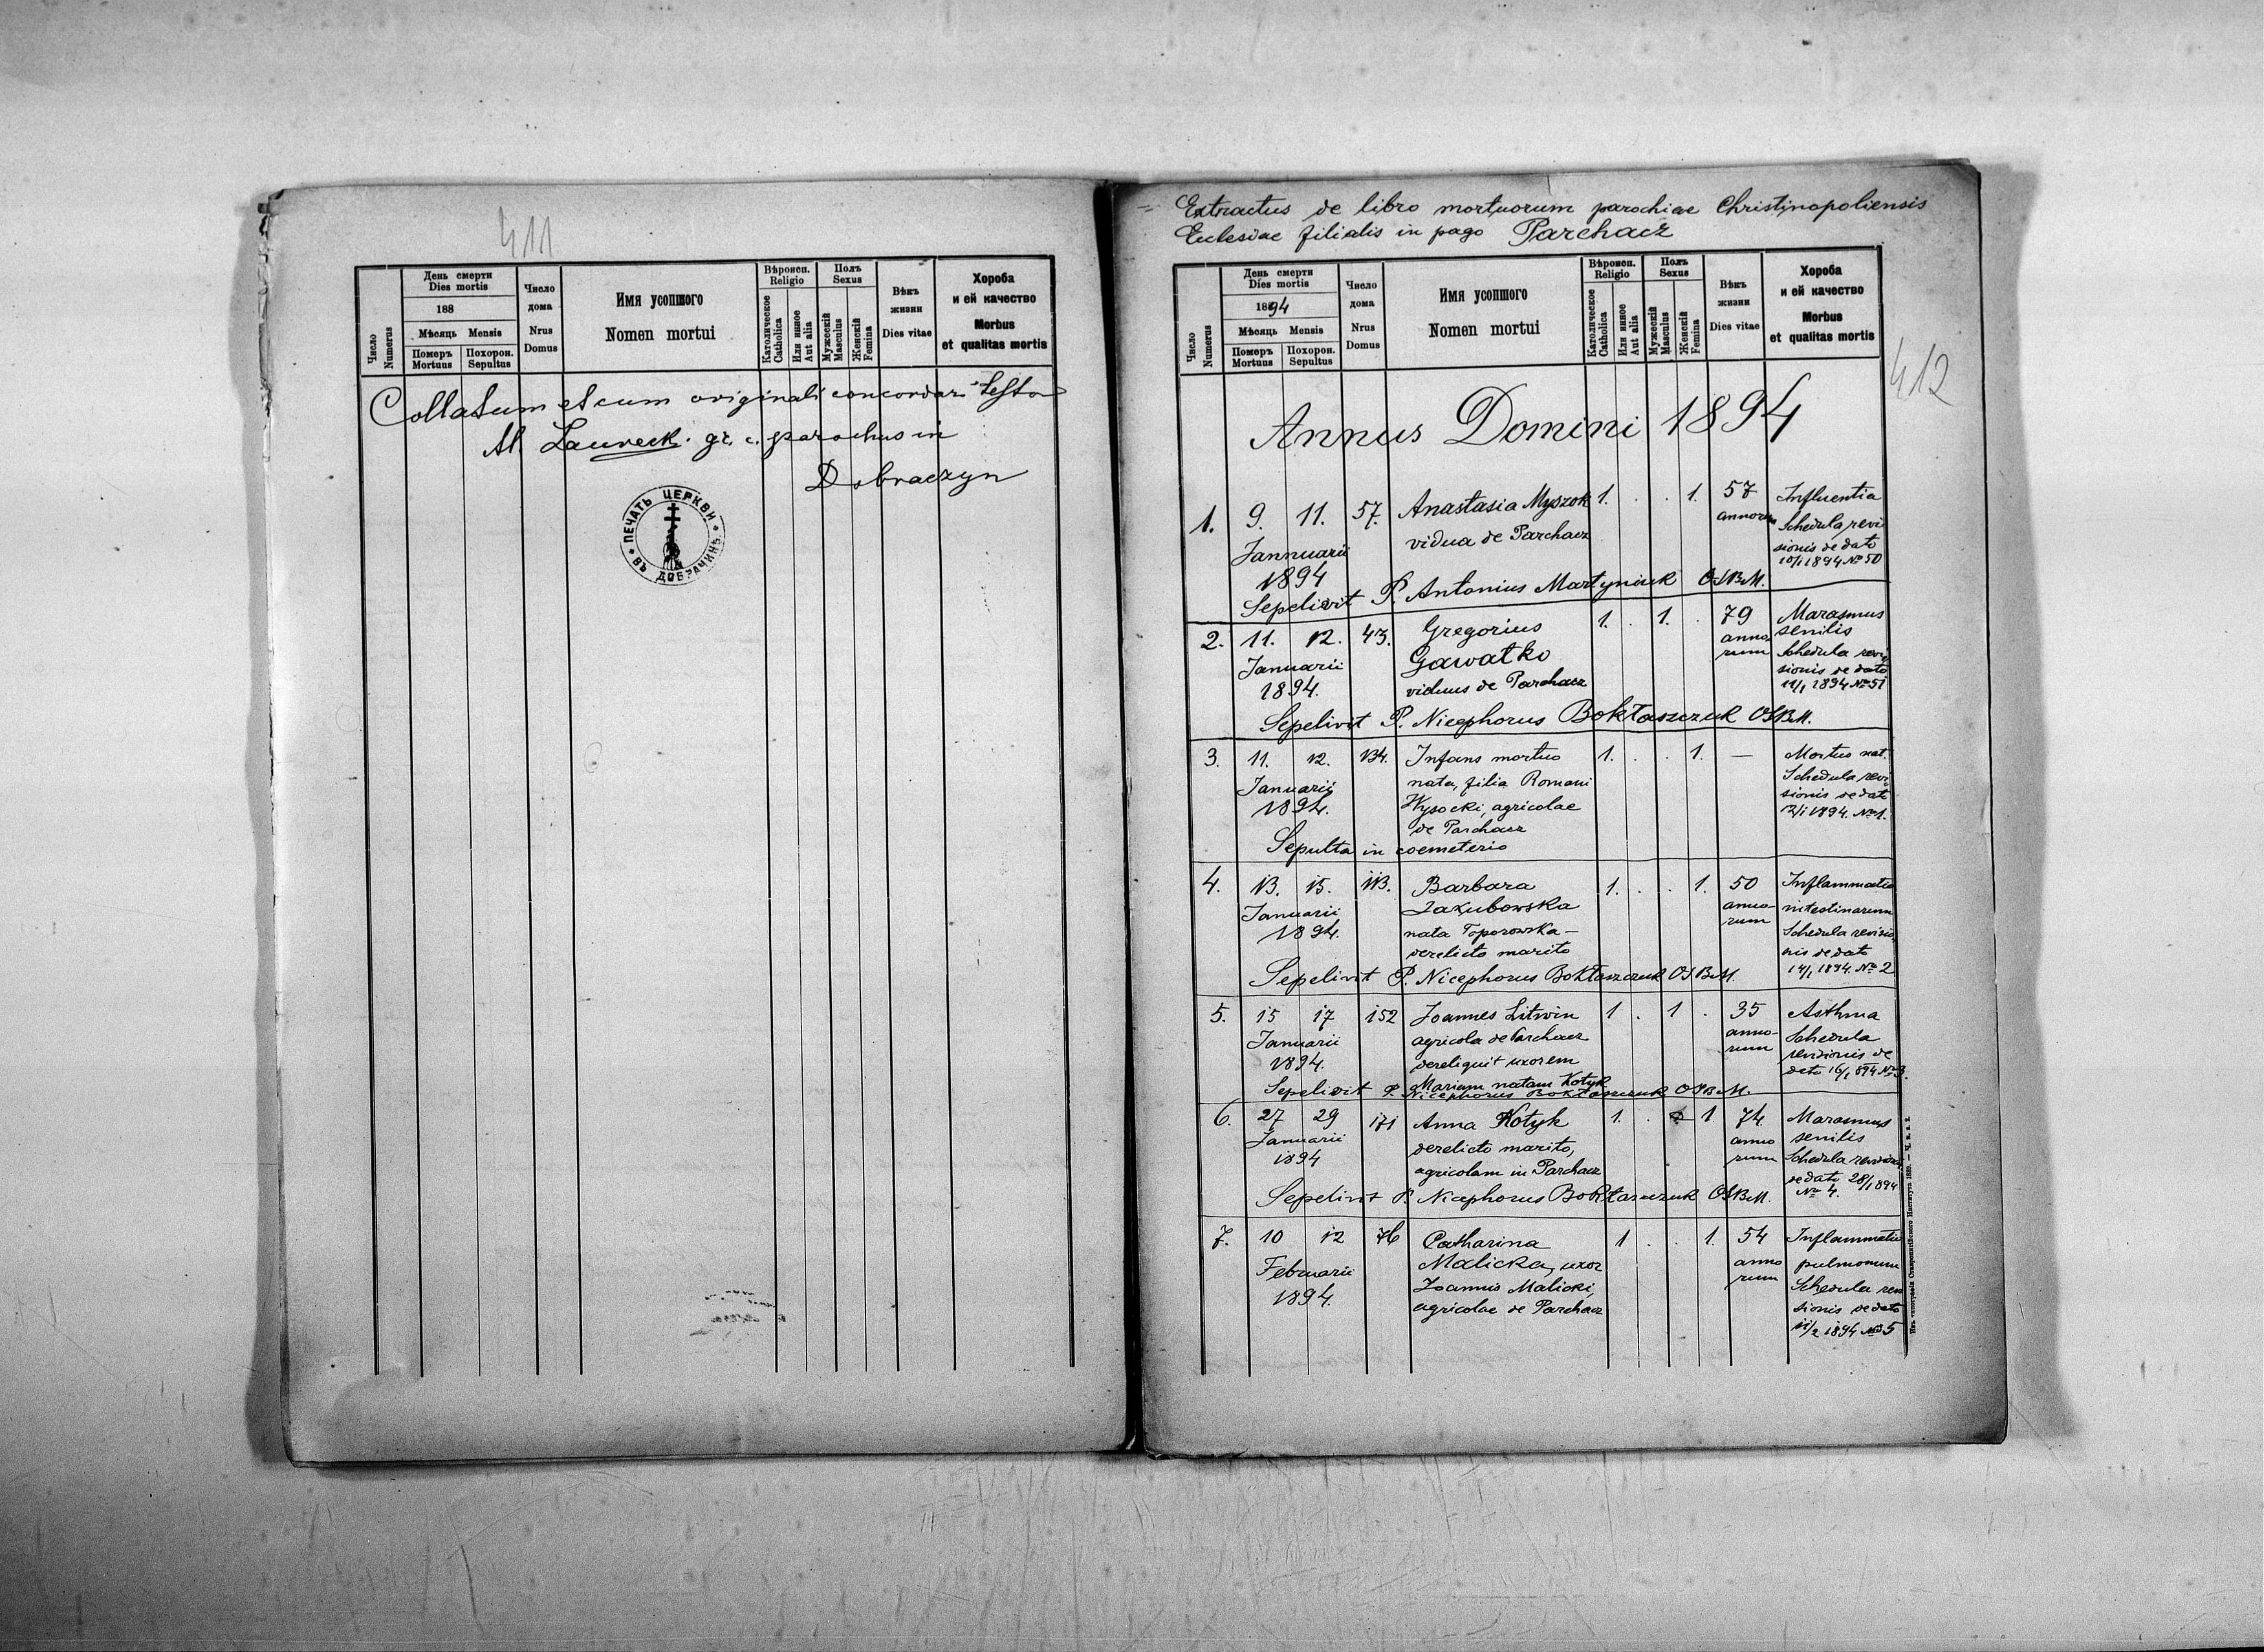 411
День смерти
Dies mortis
188
Мѣсяць Mensis
Померъ Похорон.
Mortuus Sepultus
Число
Numerus
Число
дома
Nrus
Domus
Имя усопшого
Nomen mortui
Вѣроисп.
Religio
Католическое
Catholica
Или инное
Aut alia
Полъ
Sexus
Мужескій
Masculus
Женскій
Femina
Вѣкъ
жизни
Dies vitae
Хороба
и ей качество
Morbus
et qualitas mortis
Collatum et cum originali concordari testor
Al. Laureck. gr. c. parochus in
Dobraczyn
ПЕЧАТЬ ЦЕРКВИ
ВЪ ДОБРАЧИНѢ
Extractus de libro mortuorum parochiae Christinopoliensis
Ecclesiae filialis in pago Parchacz
412
День смерти
Dies mortis
1894
Мѣсяць Mensis
Померъ Похорон.
Mortuus Sepultus
Число
Numerus
Число
дома
Nrus
Domus
Имя усопшого
Nomen mortui
Вѣроисп.
Religio
Католическое
Catholica
Или инное
Aut alia
Полъ
Sexus
Мужескій
Masculus
Женскій
Femina
Вѣкъ
жизни
Dies vitae
Хороба
и ей качество
Morbus
et qualitas mortis
Annus Domini 1894
1. 9. 11. 57. Anastasia Myszok 1. . . 1. 57 Influentia
Jannuarii vidua de Parchacz annorum Schedula revi
1894 sionis de dato
10/1 1894 No 50
Sepelivit P. Antonius Martyniuk OSBM.
2. 11. 12. 43. Gregorius 1. . 1. . 79 Marasmus
Januarii Gawałko anno- senilis
1894. viduus de Parchacz rum Schedula revi
sionis de dato
11/1 1894 No 51
Sepelivit P. Nicephorus Bokłaszczuk OSBM.
3. 11. 12. 134. Infans mortuo 1. . . 1. — Mortuo nat.
Januarii nata, filia Romani Schedula revi
1894. Wysocki, agricolae sionis de dato
de Parchacz 12/1 1894. No 1.
Sepulta in coemeterio
4. 13. 15. 113. Barbara 1. . . 1. 50 Inflammatio
Januarii Jakubowska anno- intestinarum
1894. nata Toporowska – rum Schedula revisio
derelicto marito nis de dato
14/1 1894. No 2
Sepelivit P. Nicephorus Bokłaszczuk OSBM.
5. 15 17 152 Joannes Litwin 1 . 1 . 35 Asthma
Januarii agricola de Parchacz anno- Schedula
1894. dereliquit uxorem rum revisionis de
Mariam natam Kotyk dato 16/1 894 No 3.
Sepelivit P. Nicephorus Bokłaszczuk OSBM.
6. 27 29 171 Anna Kotyk 1. . 1 74 Marasmus
Januarii derelicto marito, anno senilis
1894 agricolam in Parchacz rum Schedula revisionis
de dato 28/1 894
No 4.
Sepelivit P. Nicephorus Bokłaszczuk OSBM.
7. 10 12 76 Catharina 1 . . 1. 54 Inflammatio
Februarii Malicka, uxor anno pulmonum
1894. Joannis Malicki, rum Schedula revi
agricolae de Parchacz sionis de dato
11/2 1894 No 5